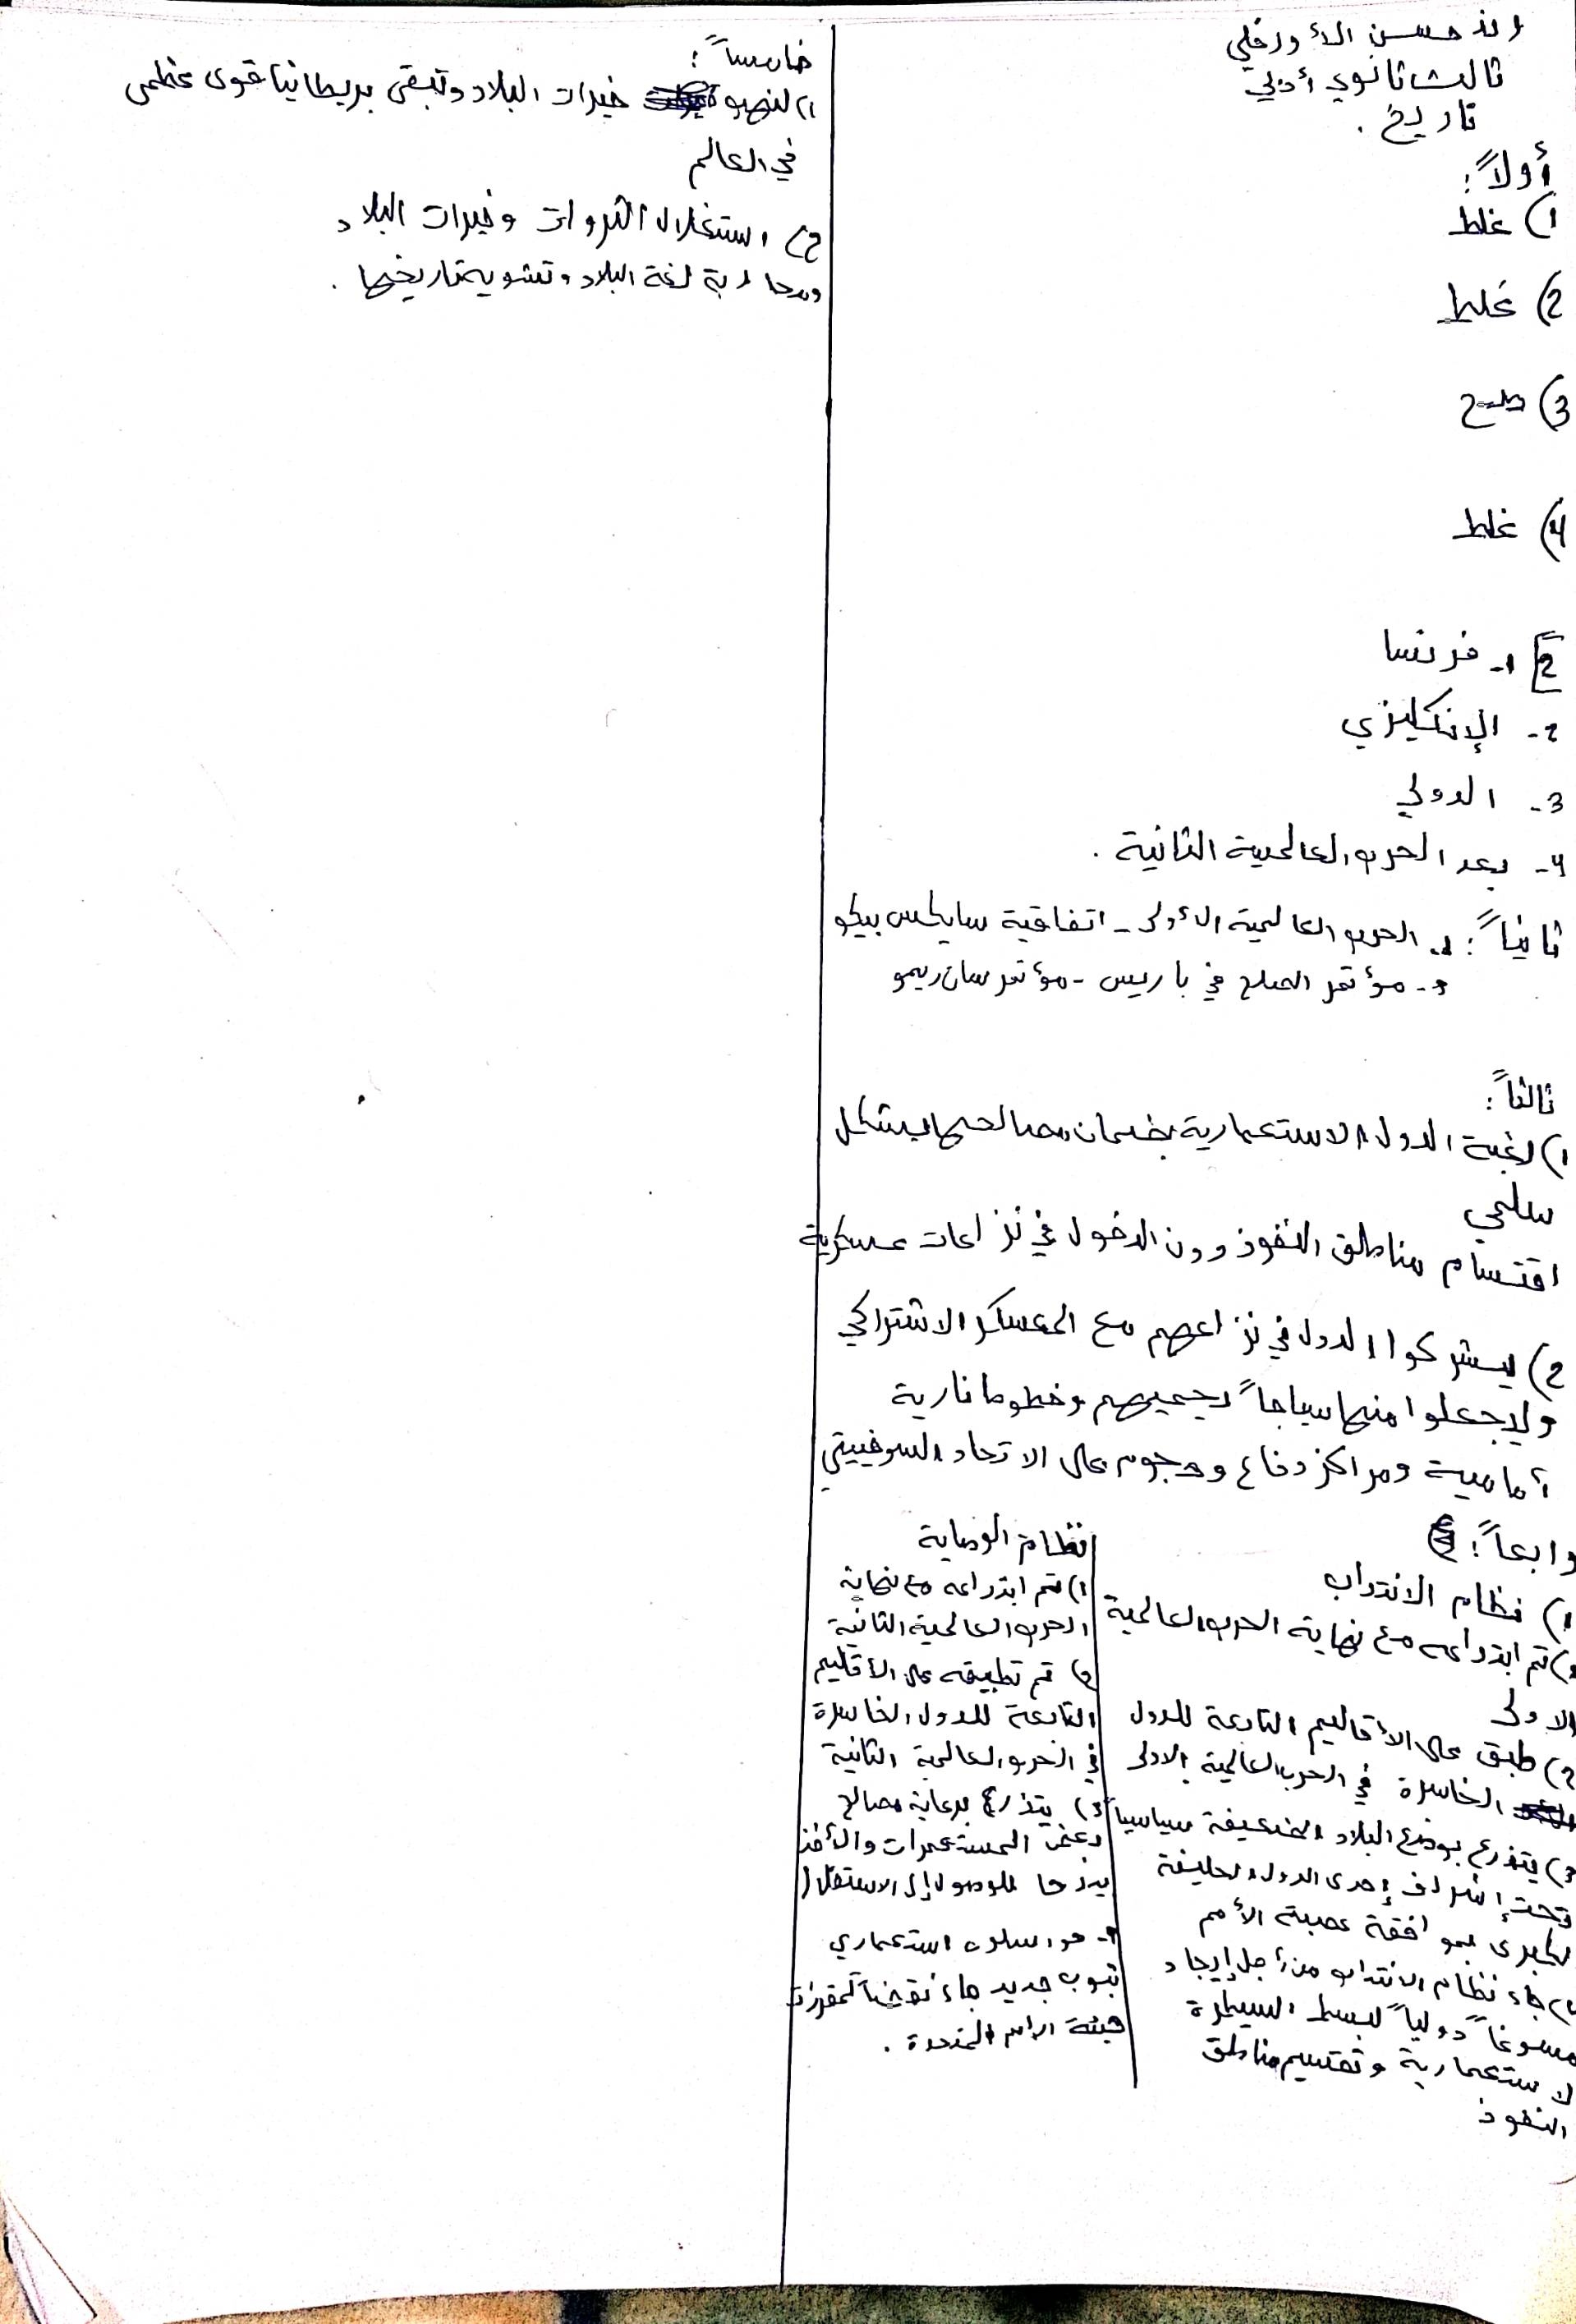 حسن الأورفلي
ثالث ثانوي أدبي
تاريخ .
أولاً :
1) غلط
2) غلط
3) صح
4) غلط
2] 1- فرنسا
2- الإنكليزي
3- الدولي
4- بعد الحرب العالمية الثانية .
ثانياً : 1- الحرب العالمية الأولى - اتفاقية سايكس بيكو
2- مؤتمر الصلح في باريس - مؤتمر سان ريمو
ثالثاً :
1) رغبة الدول الاستعمارية بضمان مصالحها بشكل
سلمي
اقتسام مناطق النفوذ دون الدخول في نزاعات عسكرية
2) ليشركوا الدول في نزاعهم مع المعسكر الاشتراكي
وليجعلوا منها سياجاً يحميهم وخطوطا نارية
أمامية ومراكز دفاع وهجوم على الاتحاد السوفييتي
رابعاً :
1) نظام الانتداب
1) تم ابتداعه مع نهاية الحرب العالمية
الاولى
2) طبق على الأقاليم التابعة للدول
الخاسرة في الحرب العالمية الاولى
3) يتذرع بوضع البلاد الضعيفة سياسياً
تحت إشراف إحدى الدول الحليفة
الكبرى بموافقة عصبة الأمم
4) جاء نظام الانتداب من أجل إيجاد
مسوغاً دولياً لبسط السيطرة
الاستعمارية وتقسيم مناطق
النفوذ
نظام الوصاية
1) تم ابتداعه مع نهاية
الحرب العالمية الثانية
2) تم تطبيقه على الأقاليم
التابعة للدول الخاسرة
في الحرب العالمية الثانية
3) يتذرع برعاية مصالح
بعض المستعمرات والأخذ
بيدها للوصول إلى الاستقلال
4- هو أسلوب استعماري
بثوب جديد جاء نقيضاً لمقررات
هيئة الامم المتحدة .
خامساً :
1) لنهب خيرات البلاد وتبقى بريطانيا قوى عظمى
في العالم
2) استغلال الثروات وخيرات البلاد
ومحاربة لغة البلاد وتشويه تاريخها .